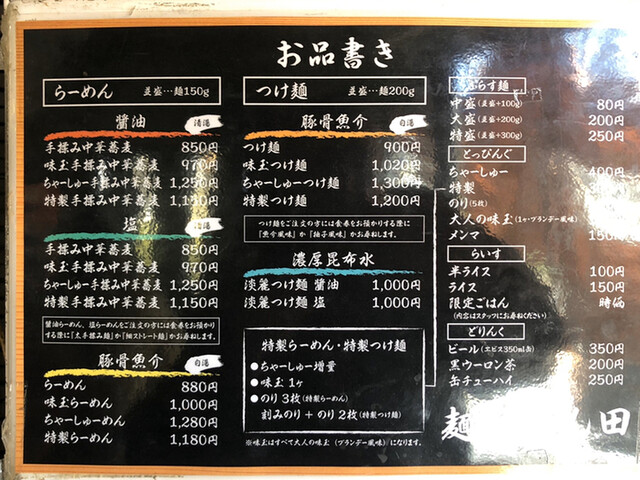 お品書き
らーめん 並盛…麺150g
醤油 清湯
手揉み中華蕎麦 850円
味玉手揉み中華蕎麦 970円
ちゃーしゅー手揉み中華蕎麦 1,250円
特製手揉み中華蕎麦 1,150円
塩 清湯
手揉み中華蕎麦 850円
味玉手揉み中華蕎麦 970円
ちゃーしゅー手揉み中華蕎麦 1,250円
特製手揉み中華蕎麦 1,150円
醤油らーめん、塩らーめんをご注文の方には食券をお預かりする際に「太手揉み麺」か「細ストレート麺」かお尋ねします。
豚骨魚介 白湯
らーめん 880円
味玉らーめん 1,000円
ちゃーしゅーめん 1,280円
特製らーめん 1,180円
つけ麺 並盛…麺200g
豚骨魚介 白湯
つけ麺 900円
味玉つけ麺 1,020円
ちゃーしゅーつけ麺 1,300円
特製つけ麺 1,200円
つけ麺をご注文の方には食券をお預かりする際に
「魚介風味」か「柚子風味」かお尋ねします。
濃厚昆布水
淡麗つけ麺 醤油 1,000円
淡麗つけ麺 塩 1,000円
特製らーめん・特製つけ麺
●ちゃーしゅー増量
●味玉 1ヶ
●のり 3枚(特製らーめん)
刻みのり + のり 2枚(特製つけ麺)
※味玉はすべて大人の味玉(ブランデー風味)になります。
ぷらす麺
中盛(並盛+100g) 80円
大盛(並盛+200g) 200円
特盛(並盛+300g) 250円
とっぴんぐ
ちゃーしゅー 400円
特製
のり(5枚)
大人の味玉(1ヶ・ブランデー風味)
メンマ 150円
らいす
半ライス 100円
ライス 150円
限定ごはん 時価
(内容はスタッフにお尋ねください)
どりんく
ビール(エビス350ml缶) 350円
黒ウーロン茶 200円
缶チューハイ 250円
麺 田